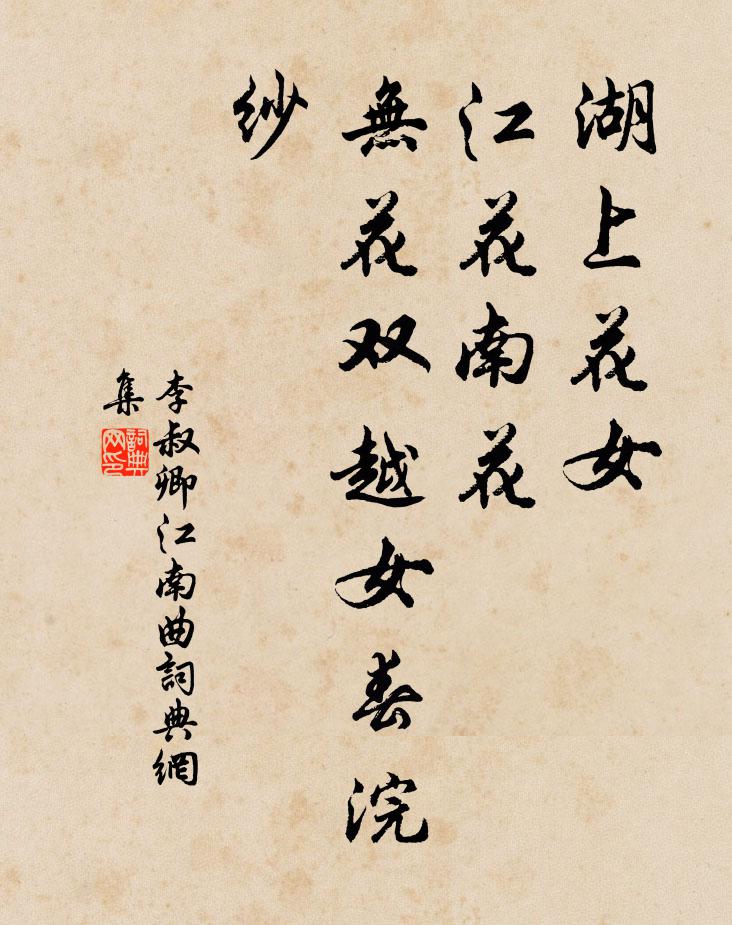 湖上花女
江花南花
無花双越女春浣
紗
李叔卿江南曲詞典網
集
詞典
网印